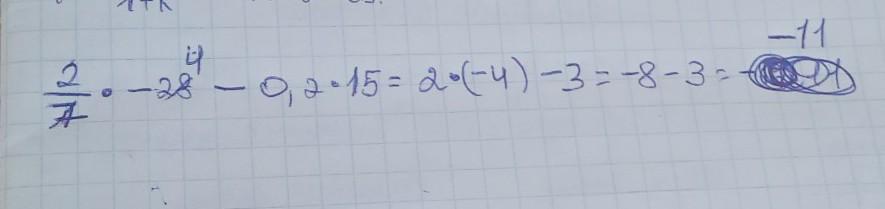 2/7 · -28 4 - 0,2·15 = 2·(-4) - 3 = -8 - 3 = -11